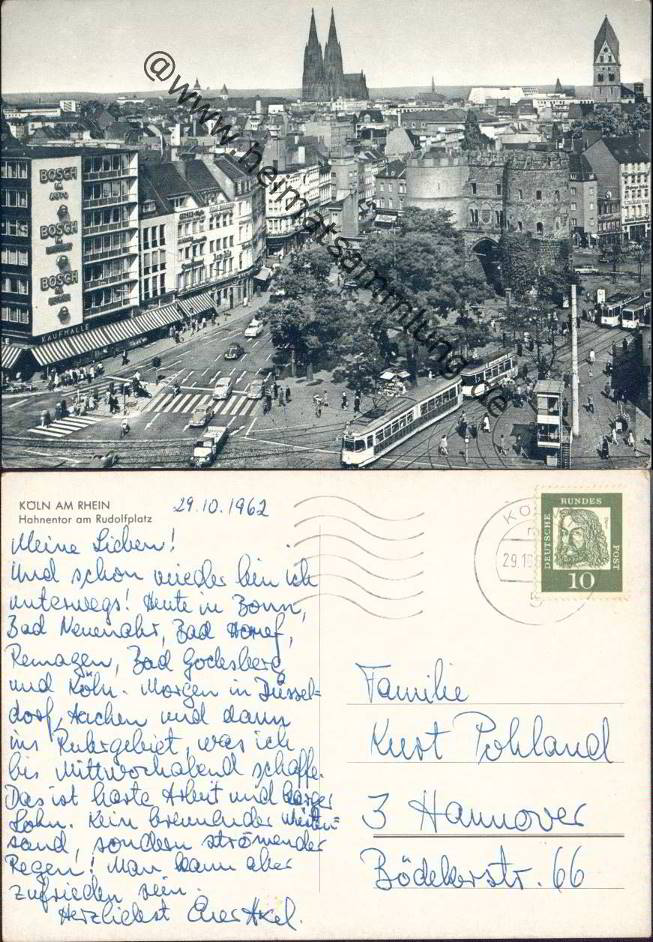 @www.heimatsammlung.de
BOSCH
BOSCH
BOSCH
KAUFHALLE
KÖLN AM RHEIN
Hahnentor am Rudolfplatz
29.10.1962
Meine Lieben!
Und schon wieder bin ich
unterwegs! Heute in Bonn,
Bad Neuenahr, Bad Honnef,
Remagen, Bad Godesberg
und Köln. Morgen in Düssel-
dorf, Aachen und dann
ins Ruhrgebiet, was ich
bis Mittwochabend schaffe.
Das ist harte Arbeit und karger
Lohn. Kein brennender Wüsten-
sand, sondern strömender
Regen! Man kann aber
zufrieden sein.
Herzliebst Euer Axel.
KÖ
29.10
5
DEUTSCHE BUNDES POST
10
Familie
Kurt Pohland
3 Hannover
Bödekerstr. 66